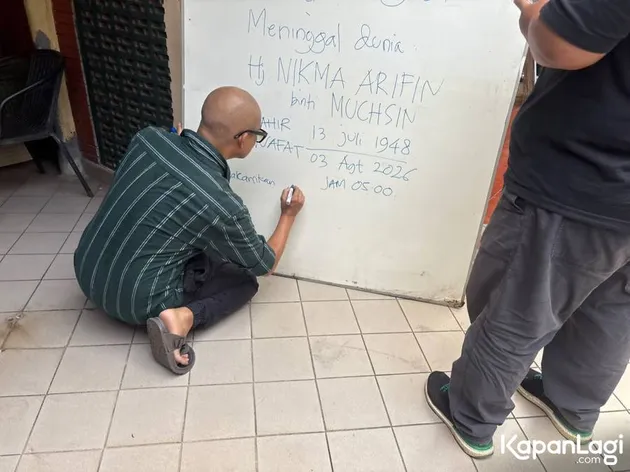 Meninggal dunia
Hj NIKMA ARIFIN
binti MUCHSIN
AHIR 13 Juli 1948
WAFAT 03 Agt 2026
akamkan JAM 05.00
KapanLagi
.com